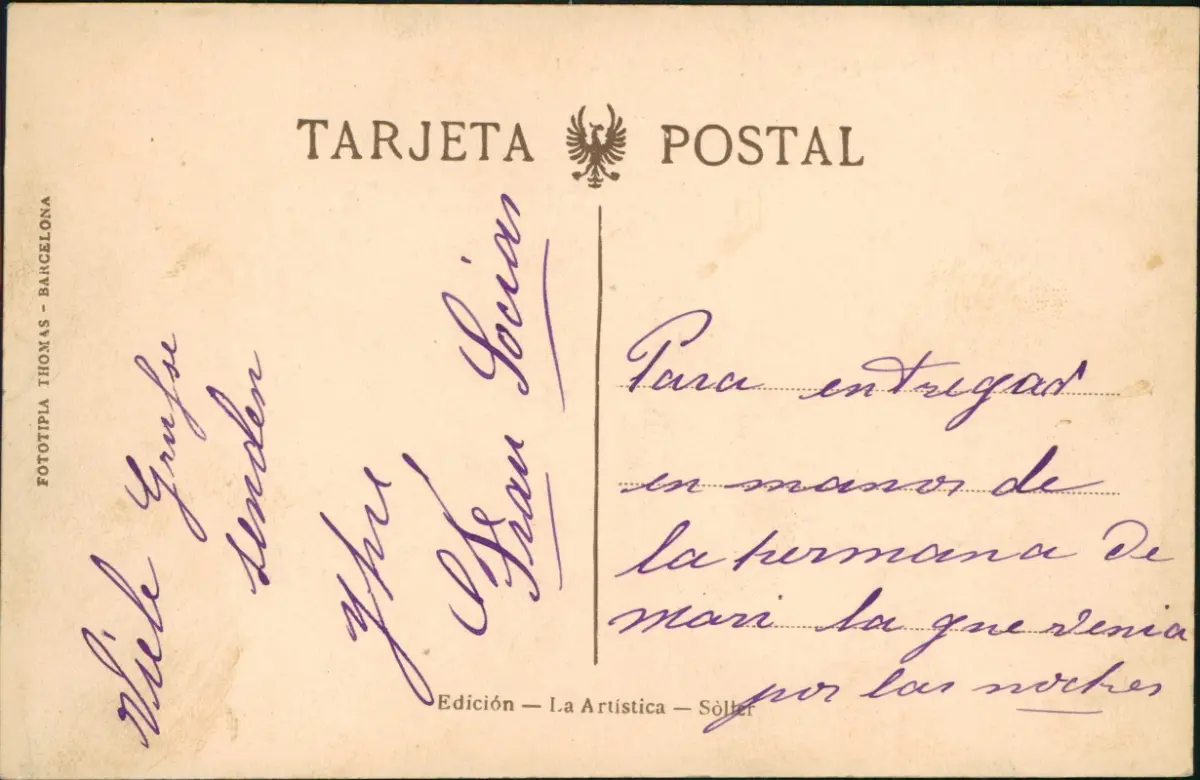 TARJETA POSTAL
FOTOTIPIA THOMAS - BARCELONA
Viele Grüsse
senden
Ihre
Frau Socias
Para entregar
en manos de
la hermana De
Mari la que venia
por las noches
Edición — La Artística — Sòller